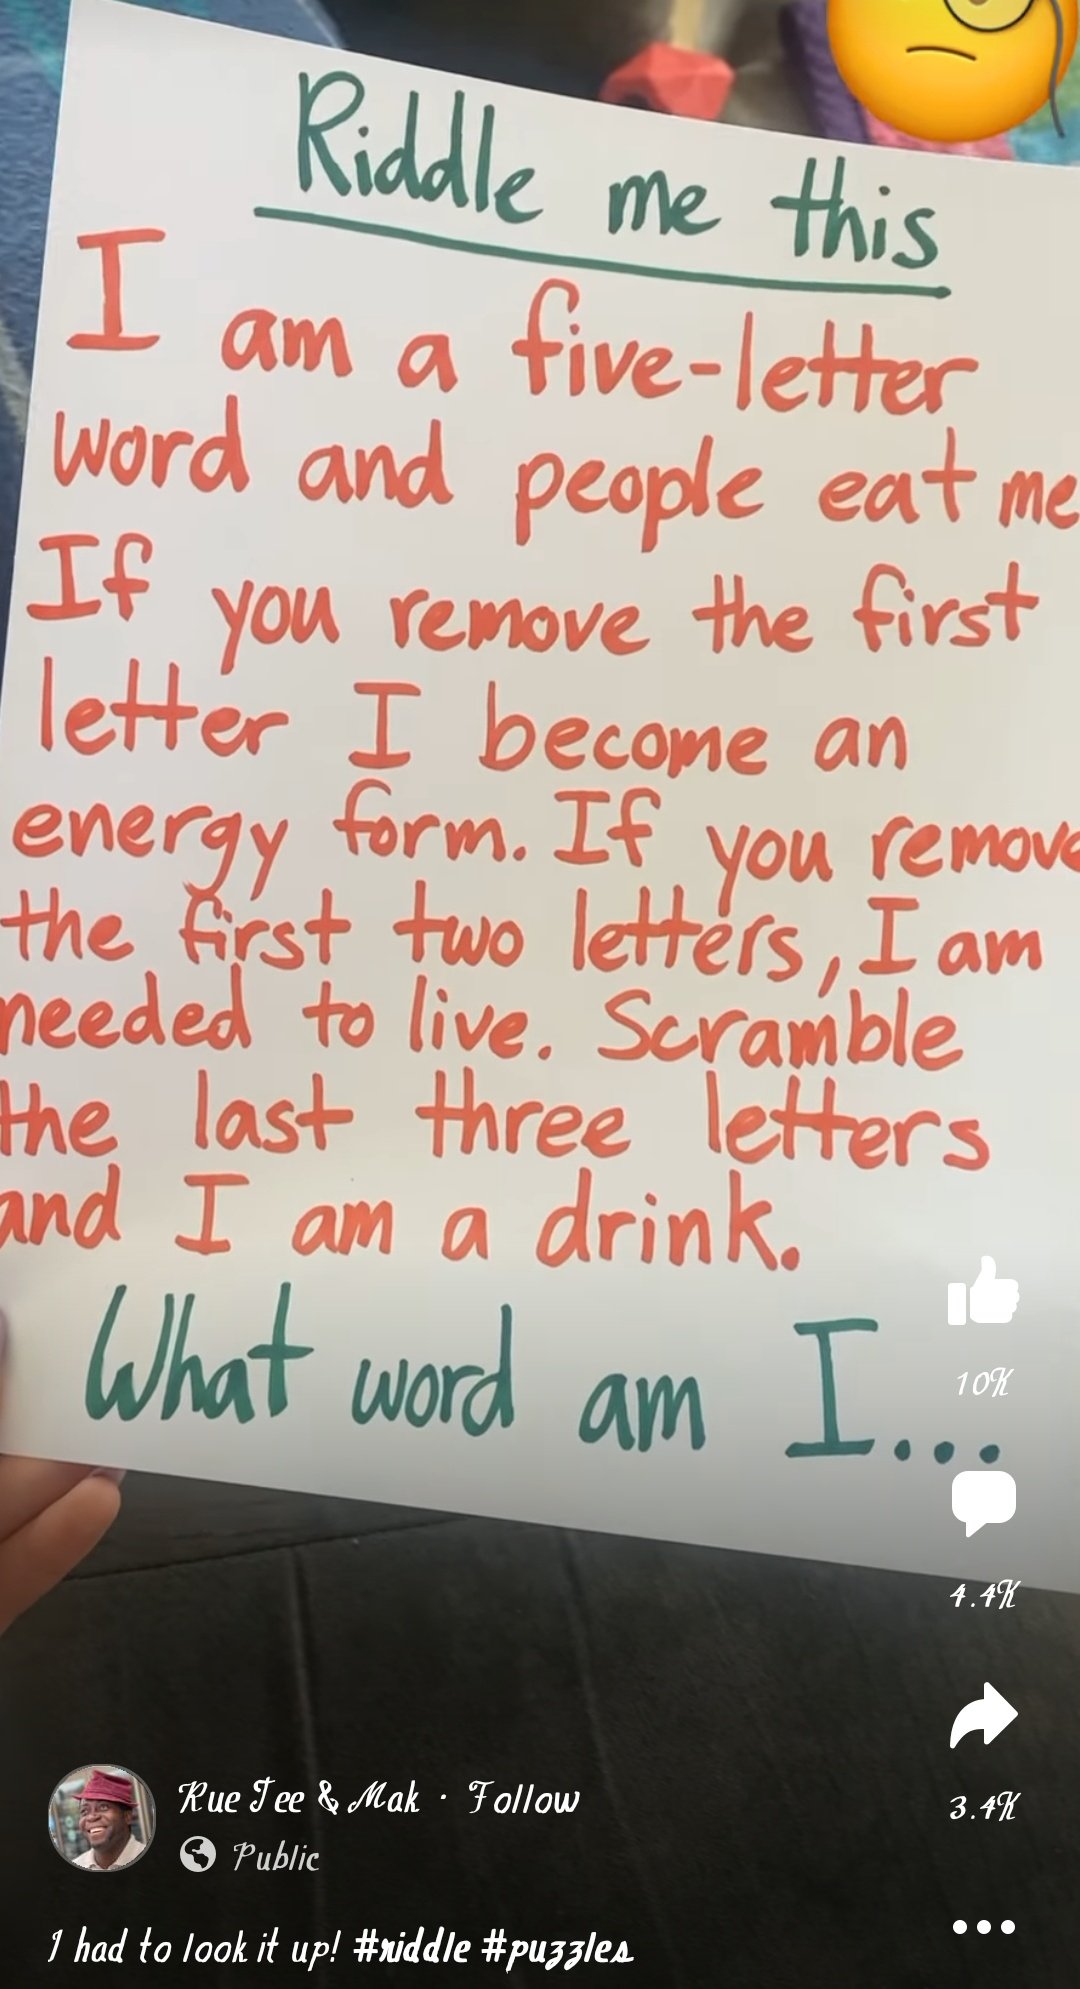 Riddle me this
I am a five-letter
word and people eat me
If you remove the first
letter I become an
energy form. If you remove
the first two letters, I am
needed to live. Scramble
the last three letters
and I am a drink.
What word am I...
10K
4.4K
3.4K
Rue Tee & Mak · Follow
Public
I had to look it up! #riddle #puzzles